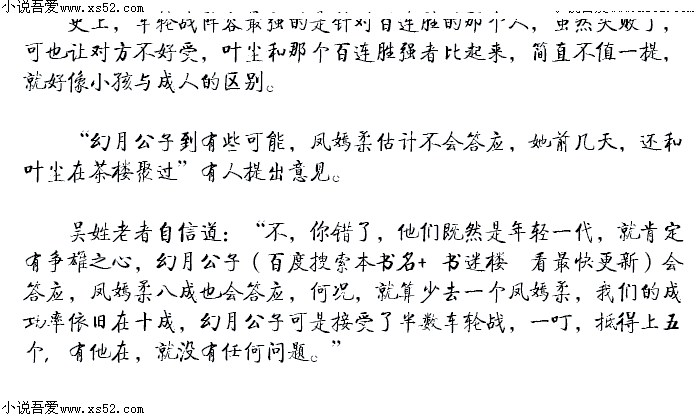 小说吾爱www.xs52.com
小说吾爱www.xs52.com
史上，车轮战阵容最强的是针对百连胜的那个人，虽然失败了，
可也让对方不好受，叶尘和那个百连胜强者比起来，简直不值一提，
就好像小孩与成人的区别。
“幻月公子到有些可能，凤嫣柔估计不会答应，她前几天，还和
叶尘在茶楼聚过”有人提出意见。
吴姓老者自信道：“不，你错了，他们既然是年轻一代，就肯定
有争雄之心，幻月公子（百度搜索本书名+ 书迷楼 看最快更新）会
答应，凤嫣柔八成也会答应，何况，就算少去一个凤嫣柔，我们的成
功率依旧在十成，幻月公子可是接受了半数车轮战，一叮，抵得上五
个，有他在，就没有任何问题。”
小说吾爱www.xs52.com